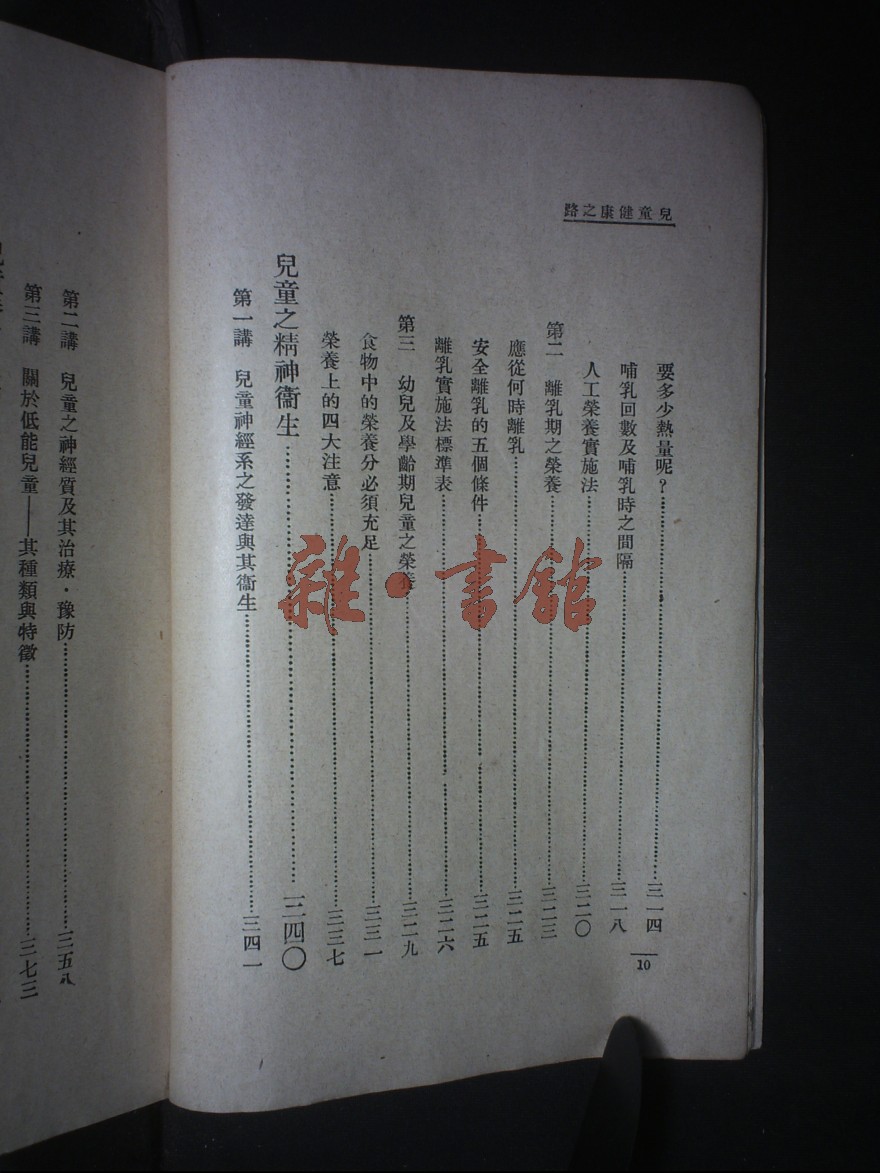 兒童健康之路
要多少熱量呢？……三一四
哺乳回數及哺乳時之間隔……三一八
人工榮養實施法……三二〇
第二　離乳期之榮養……三二三
應從何時離乳……三二五
安全離乳的五個條件……三二五
離乳實施法標準表……三二六
第三　幼兒及學齡期兒童之榮養……三二九
食物中的榮養分必須充足……三三一
榮養上的四大注意……三三七
兒童之精神衞生……三四〇
第一講　兒童神經系之發達與其衞生……三四一
10
第二講　兒童之神經質及其治療·豫防……三五八
第三講　關於低能兒童——其種類與特徵……三七三
雜·書館